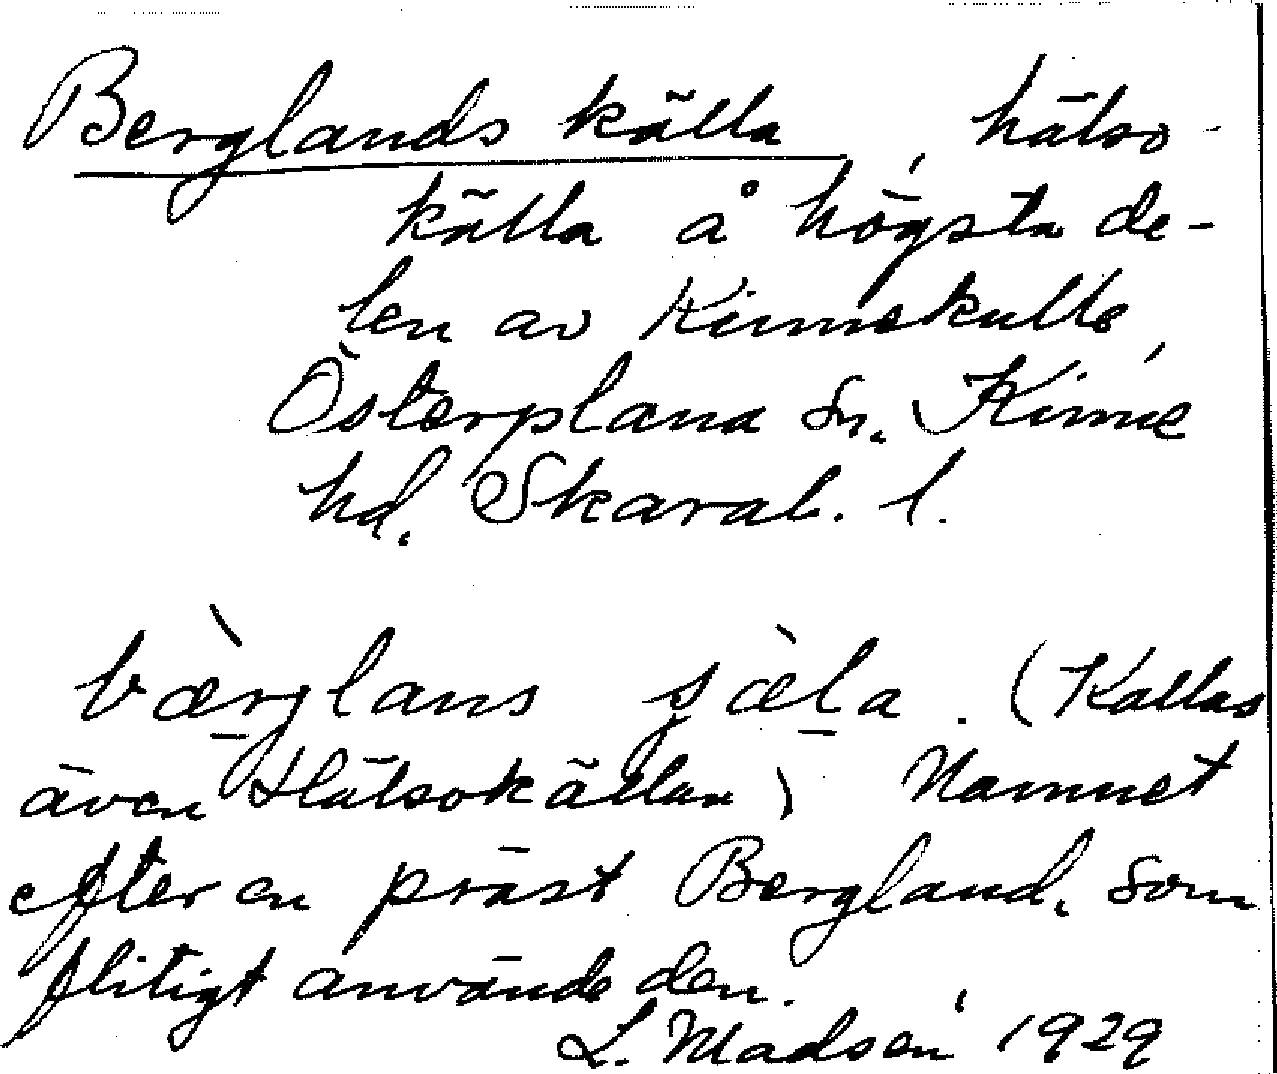 Berglands källa, hälso-
källa å högsta de-
len av Kinnekulle,
Österplana sn, Kinne
hd, Skarab. l.
bærglans sjæla. (Kallas
även Hälsokällan) Namnet
efter en präst Bergland, som
flitigt använde den.
L. Madsén 1929